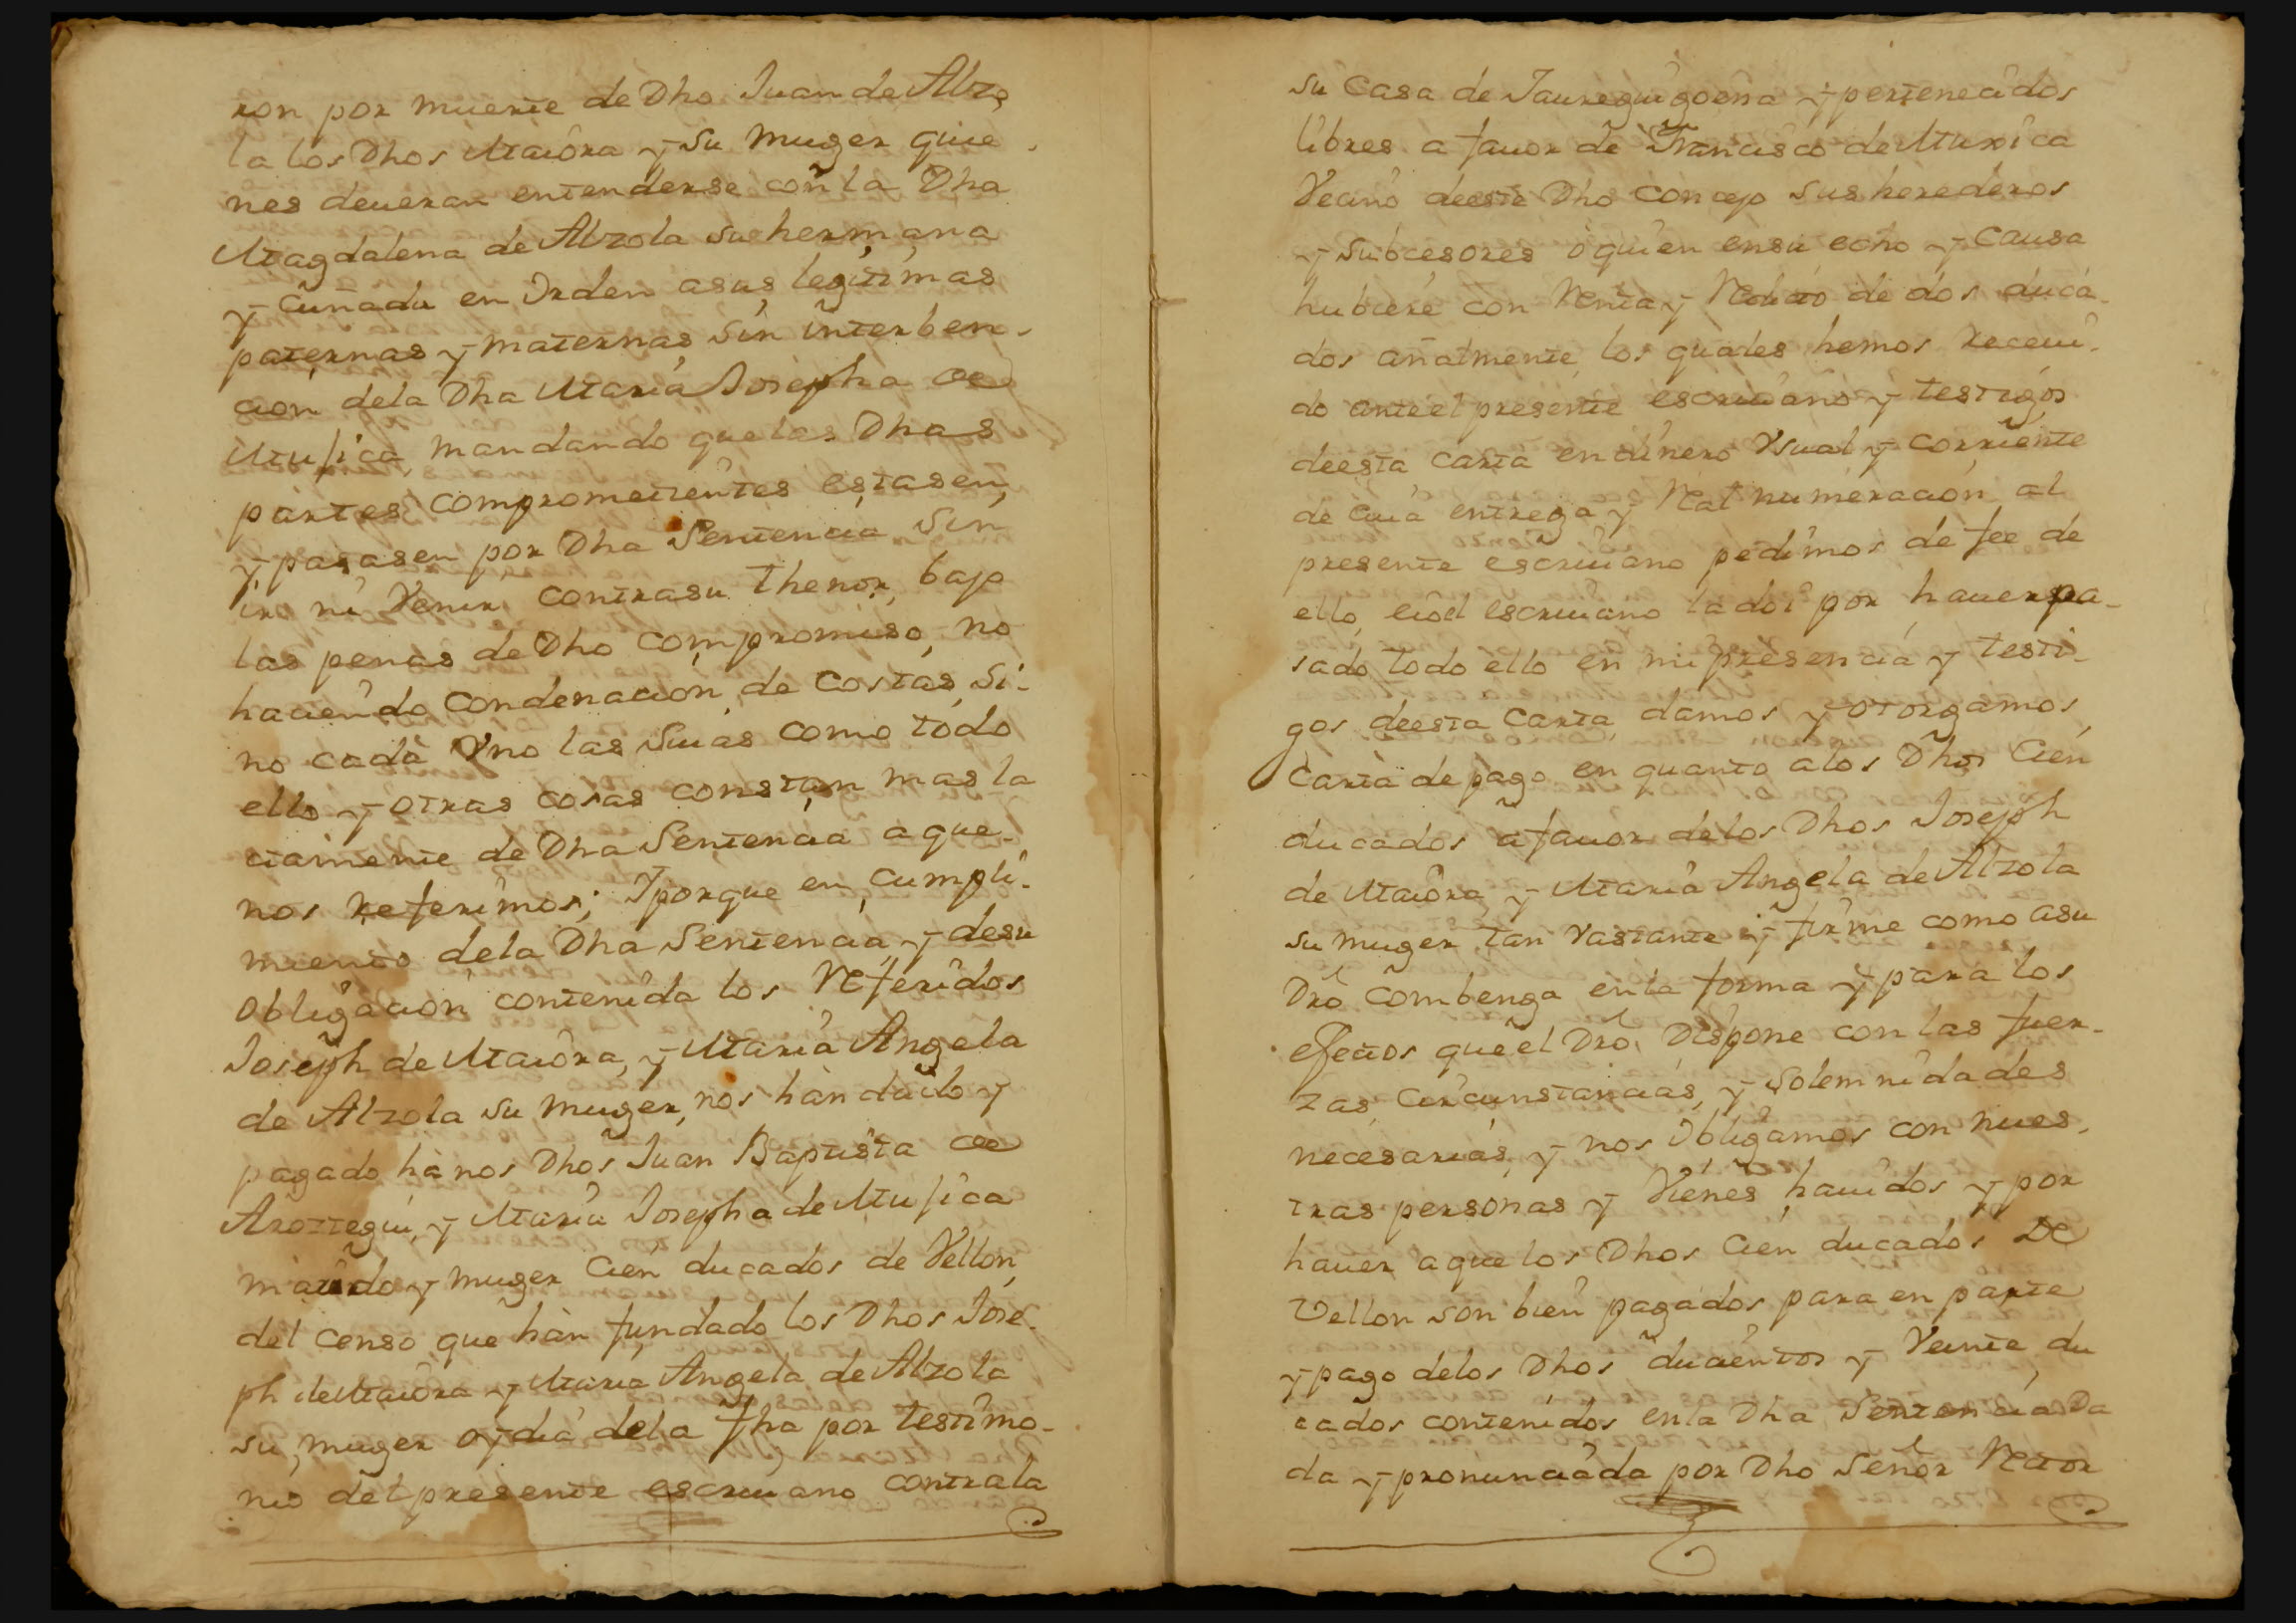 ron por muerte de Dho Juan de Alzo
la los Dhos Maiora y su muger quie
nes deueran entenderse con la Dha
Magdalena de Alzola su hermana
y Cuñada en Orden asus legitimas
paternas y maternas sin interben-
cion dela Dha Maria Josepha de
Mujica mandando que las Dhas
partes comprometientes estasen
y pasasen por Dha Sentencia sin
ir ni Venir contrasu thenor, bajo
las penas de Dho compromiso, no
haciendo Condenacion de Costas, si-
no cada Vno las suias como todo
ello y otras cosas constan mas la
ciamente de Dha Sentencia a que
nos referimos; Yporque en cumpli-
miento dela Dha Sentencia y desu
Obligacion contenida los Referidos
Joseph de Maiora, y Maria Angela
de Alzola su muger, nos hàn dado y
pagado hà nos Dhos Juan Baptista de
Aroztegui, y Maria Josepha de Mujica
marido y muger Cien ducados de Vellon
del censo que hàn fundado los Dhos Jose-
ph de Maiora y Maria Angela de Alzola
su muger oy dia dela fha por testimo-
nio del presente escriuano contrala
su Casa de Jaureguigoena y pertenecidos
libres a fauor de Francisco de Muxica
Vecino deeste Dho Concejo sus herederos
y subcesores ò quien ensu echo y Causa
hubiere con Renta y Redito de dos duca-
dos añalmente, los quales hemos receui-
do anteel presente escriuano y testigos
deesta carta en dinero Vsual y corriente
de cuia entrega y Real numeracion al
presente escriuano pedimos de fee de
ello, eioel escriuano la doi por hauerpa-
sado todo ello en mi presencia y testi-
gos deesta Carta, damos y otorgamos
Carta de pago en quanto alos Dhos Cien
ducados afauor delos Dhos Joseph
de Maiora y Maria Angela de Alzola
su muger tan Vastante y firme como asu
Dro combenga enla forma y para los
efectos queel Dro Dispone con las fuer-
zas, Circunstancias, y solemnidades
necesarias, y nos Obligamos con nues-
tras personas y Vienes hauidos y por
hauer aque los Dhos Cien ducados De
Vellon son bien pagados para en parte
y pago delos Dhos ducientos y Veinte du
cados contenidos enla Dha Sentencia Da
da y pronunciada por Dho Señor Rector